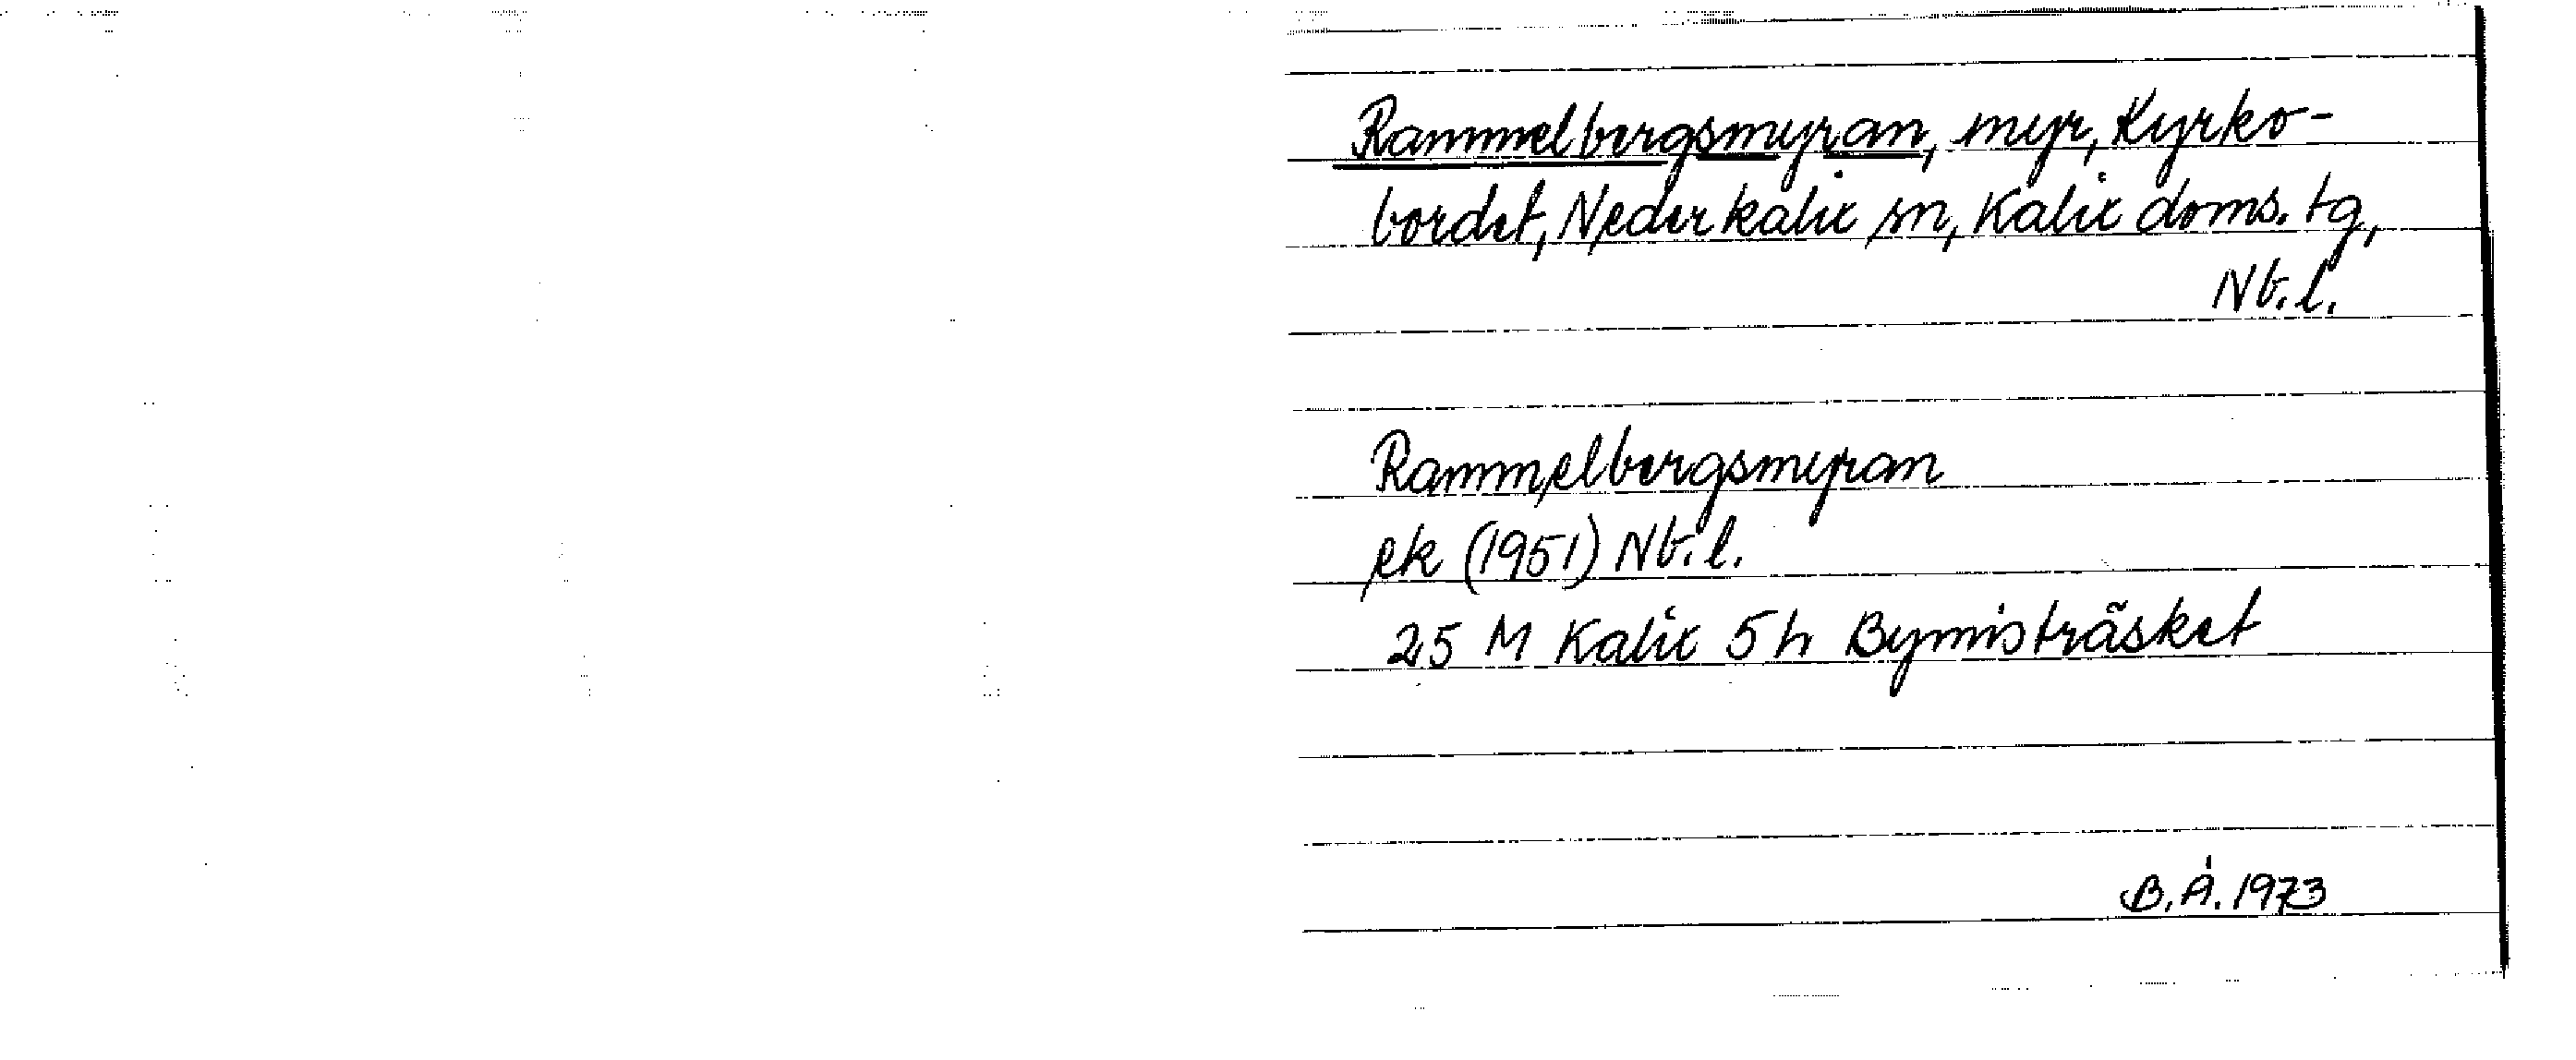 Rammelbergsmyran, myr, Kyrko-
bordet, Nederkalix sn, Kalix doms. tg,
Nb. l.
Rammelbergsmyran
ek (1951) Nb. l.
25 M Kalix 5 h Bymisträsket
B. Å. 1973